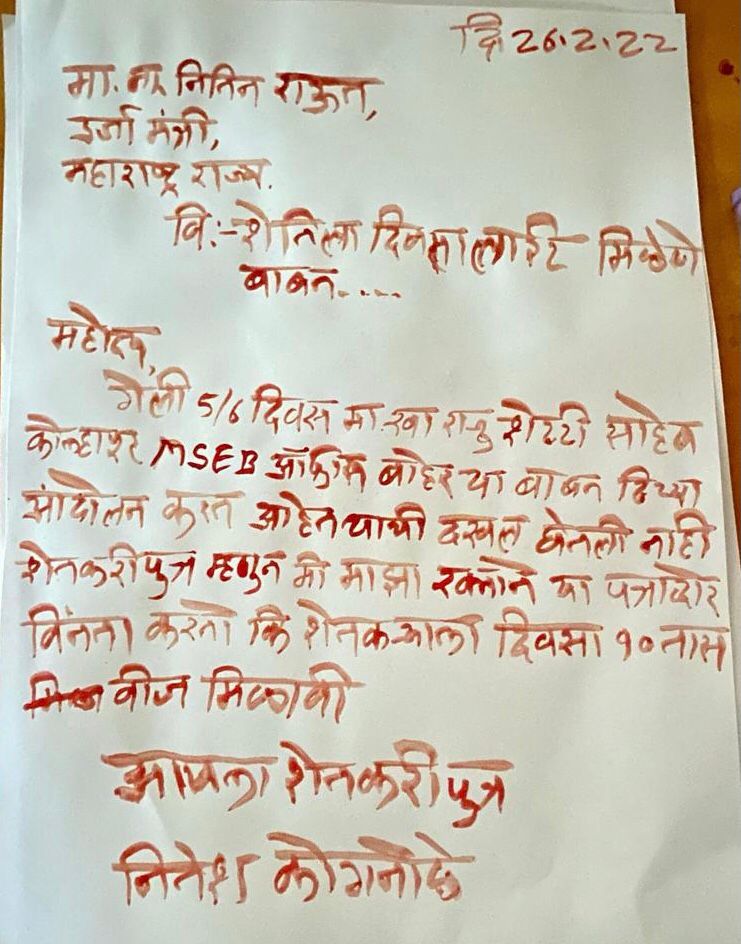 दि 26.2.22
मा. ना. नितिन राऊत,
उर्जा मंत्री,
महाराष्ट्र राज्य.
वि:- शेतिला दिवसा लाईट मिळणे
बाबत....
महोदय,
गेली 5/6 दिवस मा खा राजु शेट्टी साहेब
कोल्हापूर MSEB ऑफिस बाहेर या बाबत ठिय्या
आंदोलन करत आहेत याची दखल घेतली नाही
शेतकरीपुत्र म्हणुन मी माझा रक्ताने या पत्राव्दारे
विनंती करतो कि शेतकऱ्याला दिवसा १० तास
वीज मिळावी
आपला शेतकरी पुत्र
नितेश कोगनोळे